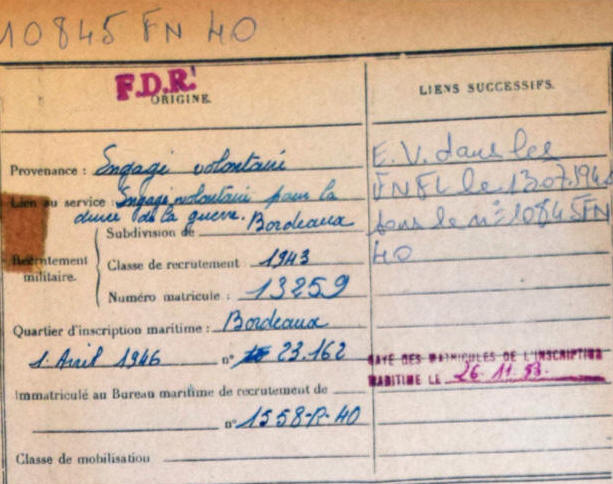 10845 FN 40
F.D.R.
ORIGINE.
LIENS SUCCESSIFS.
Provenance : Engagé volontaire
Lien au service : Engagé volontaire pour la
durée de la guerre.
Subdivision de Bordeaux
Recrutement militaire.
Classe de recrutement : 1943
Numéro matricule : 13259
Quartier d'inscription maritime : Bordeaux
1. Avril 1946 n° 23.162
Immatriculé au Bureau maritime de recrutement de
n° 1558-P-40
Classe de mobilisation
E. V. dans les
FNFL le 13.07.194
sous le n° 10845 FN
40
RAYÉ DES MATRICULES DE L'INSCRIPTION
MARITIME LE 26.11.53.